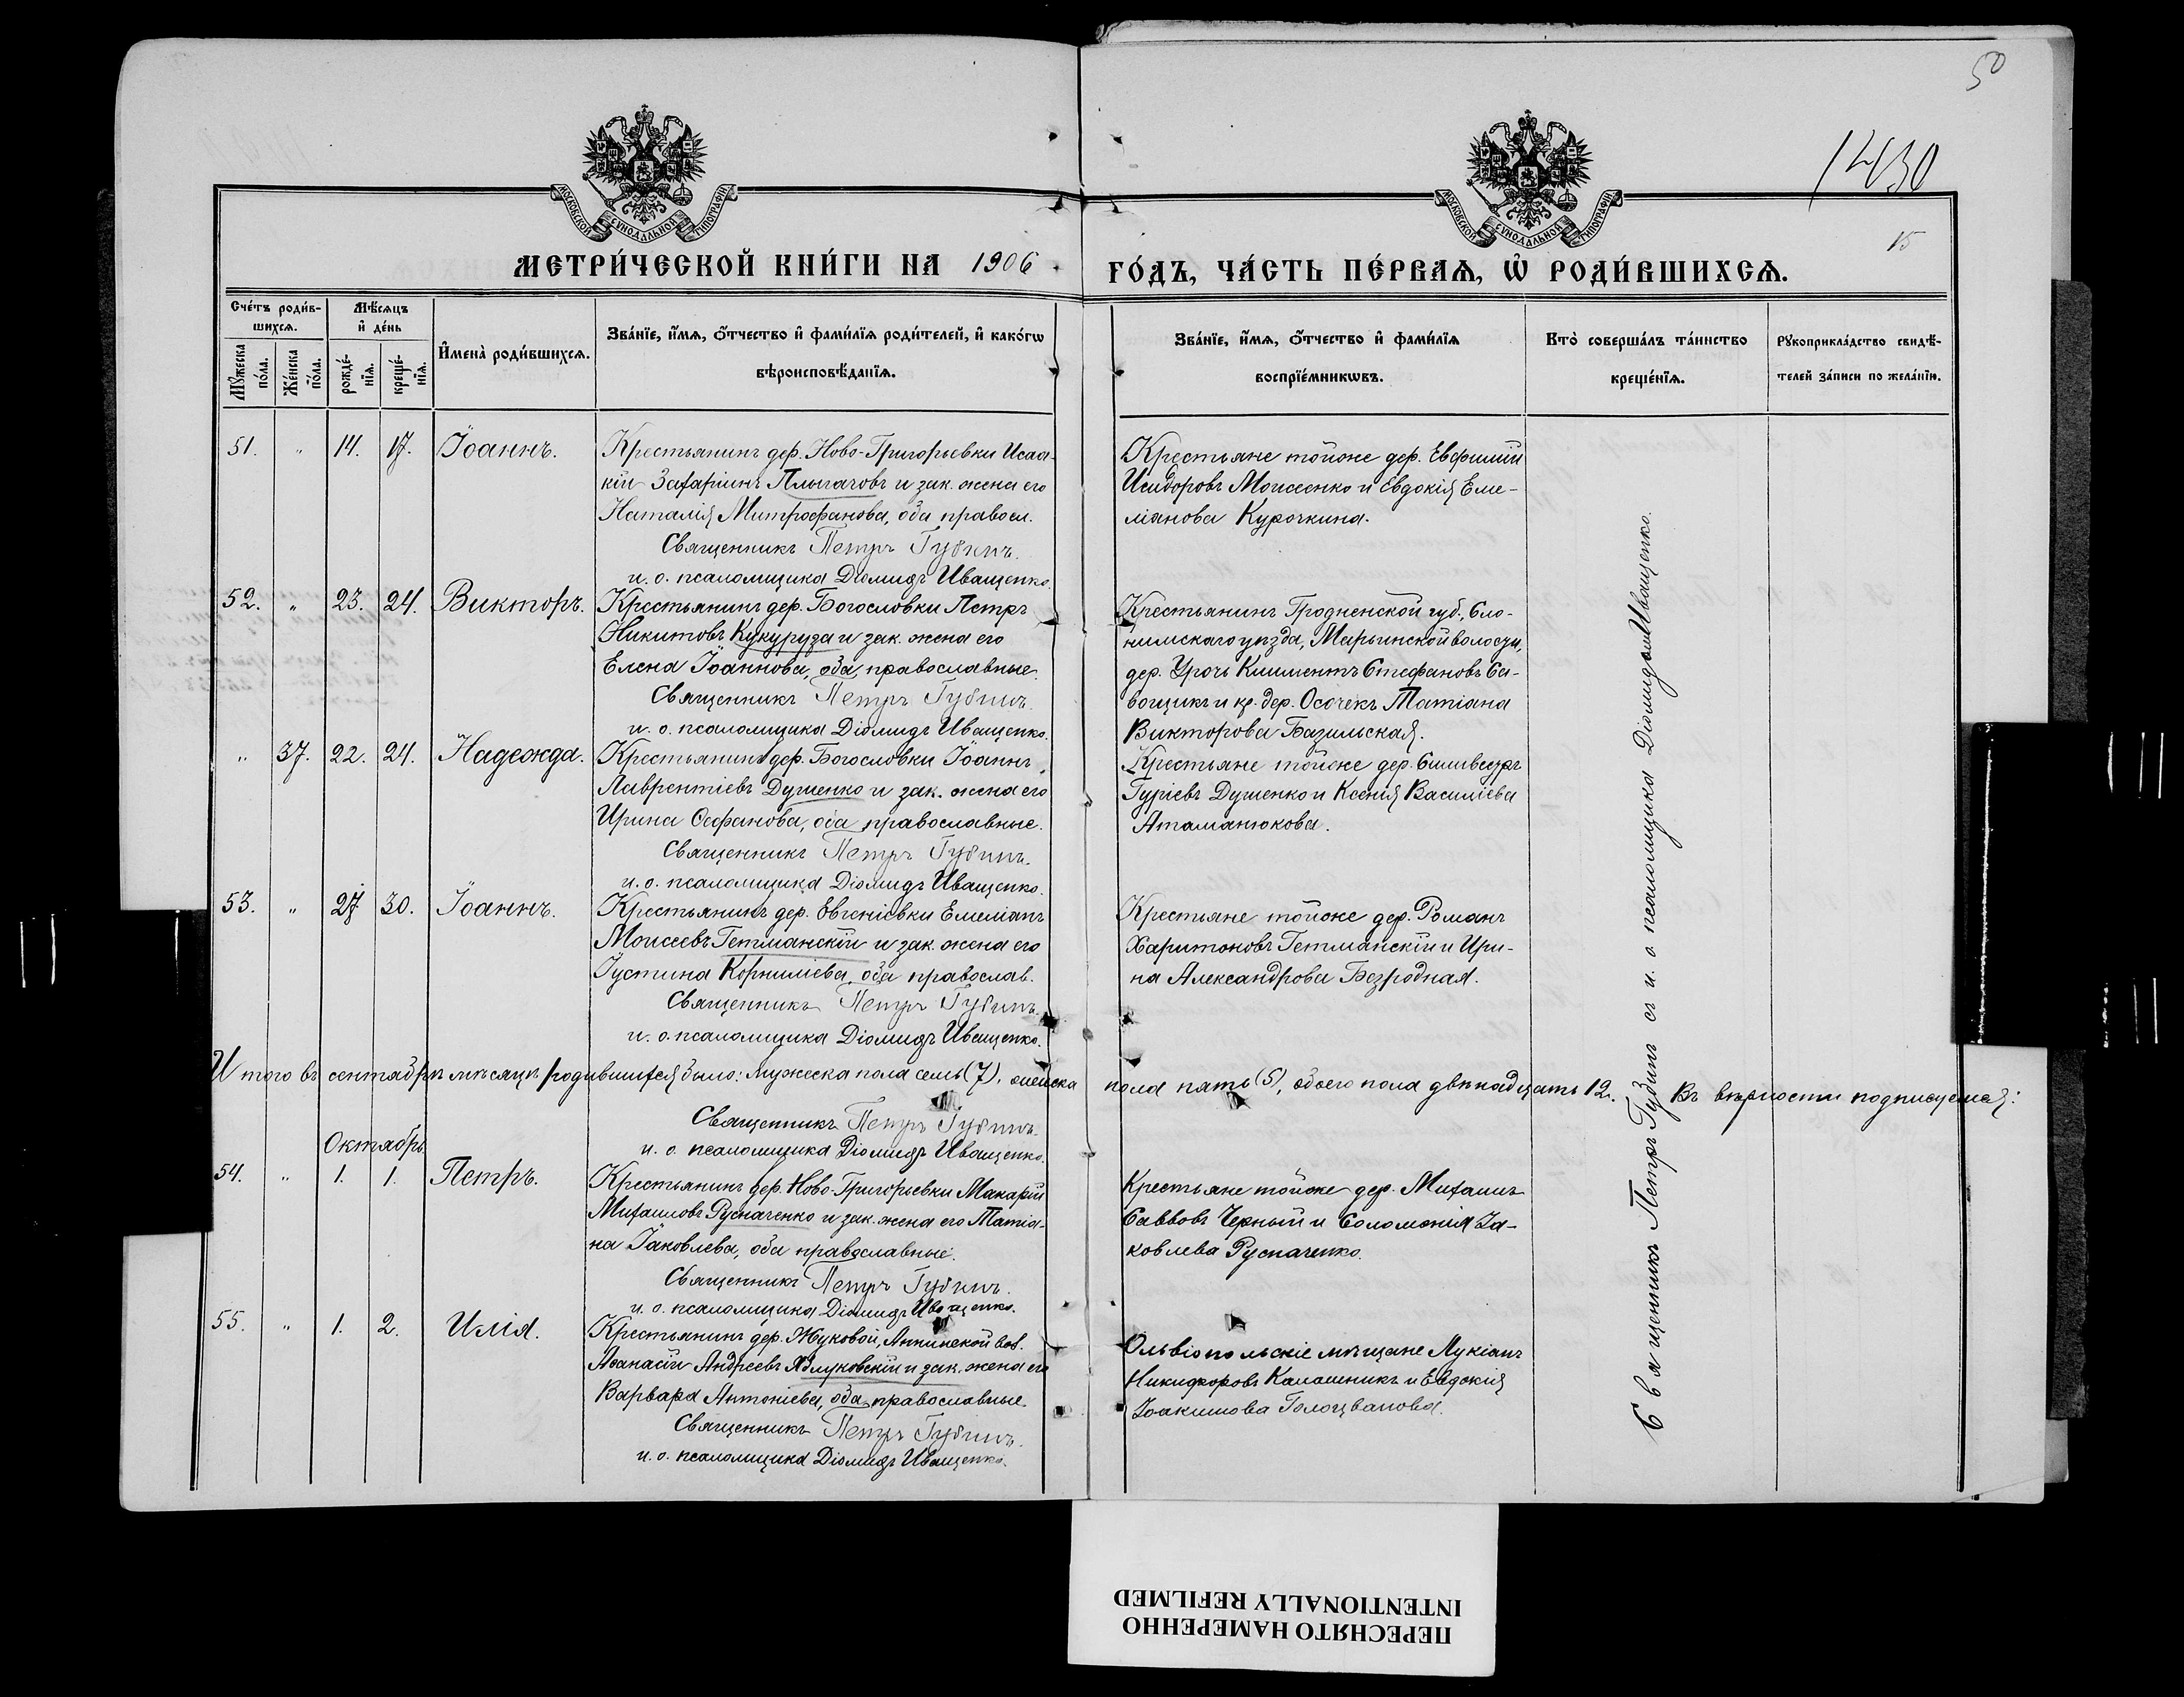 50
1430
15
МОСКОВСКОЙ СУНОДАЛЬНОЙ ТИПОГРАФІИ
МОСКОВСКОЙ СУНОДАЛЬНОЙ ТИПОГРАФІИ
МЕТРИ́ЧЕСКОЙ КНИ́ГИ НА 1906 ГО́ДЪ, ЧА́СТЬ ПЕ́РВАѦ, Ѡ РОДИ́ВШИХСѦ.
Сче́тъ роди́в-
шихсѧ.
Мꙋ́жеска по́ла.
Же́нска по́ла.
Мѣ́сѧцъ и де́нь
рожде́-
нїѧ.
креще́-
нїѧ.
И҆мена̀ роди́вшихсѧ.
Зва́нїе, и҆́мѧ, ѻ҆́тчество и҆ фами́лїѧ роди́телей, и҆ како́гѡ
вѣроисповѣ́данїѧ.
Зва́нїе, и҆́мѧ, ѻ҆́тчество и҆ фами́лїѧ
воспрїе́мникѡвъ.
Кто̀ соверша́лъ та́инство
креще́нїѧ.
Рꙋкоприкла́дство свидѣ́-
телей за́писи по жела́нїю.
51. " 14. 17. Іоаннъ.
Крестьянинъ дер. Ново-Григорьевки Исаа-
кій Захаріинъ Плыгачовъ и зак. жена его
Наталія Митрофанова, оба правосл.
Священникъ Петръ Губинъ.
и. о. псаломщика Діомидъ Иващенко.
Крестьяне тойже дер. Евфимій
Исидоровъ Моисеенко и Евдокія Еме-
ліанова Курочкина.
52. " 23. 24. Викторъ.
Крестьянинъ дер. Богословки Петръ
Никитовъ Кукуруза и зак. жена его
Елена Іоаннова, оба православные.
Священникъ Петръ Губинъ.
и. о. псаломщика Діомидъ Иващенко.
Крестьянинъ Гродненской губ., Сло-
нимскаго уѣзда, Марьинской волости,
дер. Урочь Климентъ Стефановъ Са-
вощикъ и кр. дер. Осочекъ Татіана
Викторова Базильская.
" 37. 22. 24. Надежда.
Крестьянинъ дер. Богословки Іоаннъ
Лаврентіевъ Душенко и зак. жена его
Ирина Ѳеофанова, оба православные.
Священникъ Петръ Губинъ.
и. о. псаломщика Діомидъ Иващенко.
Крестьяне тойже дер. Сильвестръ
Гуріевъ Душенко и Ксенія Василіева
Атаманюкова.
53. " 27. 30. Іоаннъ.
Крестьянинъ дер. Евгеніевки Емеліанъ
Моисеевъ Гетманскій и зак. жена его
Іустина Корниліева, оба православ.
Священникъ Петръ Губинъ.
и. о. псаломщика Діомидъ Иващенко.
Крестьяне тойже дер. Романъ
Харитоновъ Гетманскій и Ири-
на Александрова Безродная.
Итого въ сентябрѣ мѣсяцѣ родившихся было: мужеска пола семь (7), женска пола пять (5), обоего пола двѣнадцать 12. Въ вѣрности подписуемся:
Священникъ Петръ Губинъ.
и. о. псаломщика Діомидъ Иващенко.
Священникъ Петръ Губинъ съ и. о. псаломщика Діомидомъ Иващенко.
Октябрь.
54. " 1. 1. Петръ.
Крестьянинъ дер. Ново-Григорьевки Макарій
Михаиловъ Русначенко и зак. жена его Татіа-
на Іаковлева, оба православные.
Священникъ Петръ Губинъ.
и. о. псаломщика Діомидъ Иващенко.
Крестьяне тойже дер. Михаилъ
Саввовъ Черный и Соломонія Іа-
ковлева Русначенко.
55. " 1. 2. Илія.
Крестьянинъ дер. Жуковой, Аннинской вол.
Аѳанасій Андреевъ Яблуковскій и зак. жена его
Варвара Антоніева, оба православные.
Священникъ Петръ Губинъ.
и. о. псаломщика Діомидъ Иващенко.
Ольвіопольскіе мѣщане Лукіанъ
Никифоровъ Калашникъ и Евдокія
Іоакимова Голоцванова.
ПЕРЕСНЯТО НАМЕРЕННО
INTENTIONALLY REFILMED